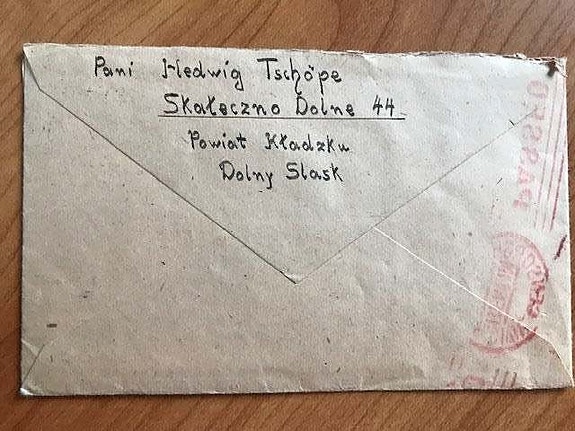 Pani Hedwig Tschöpe
Skałeczno Dolne 44
Powiat Kładzku
Dolny Slask